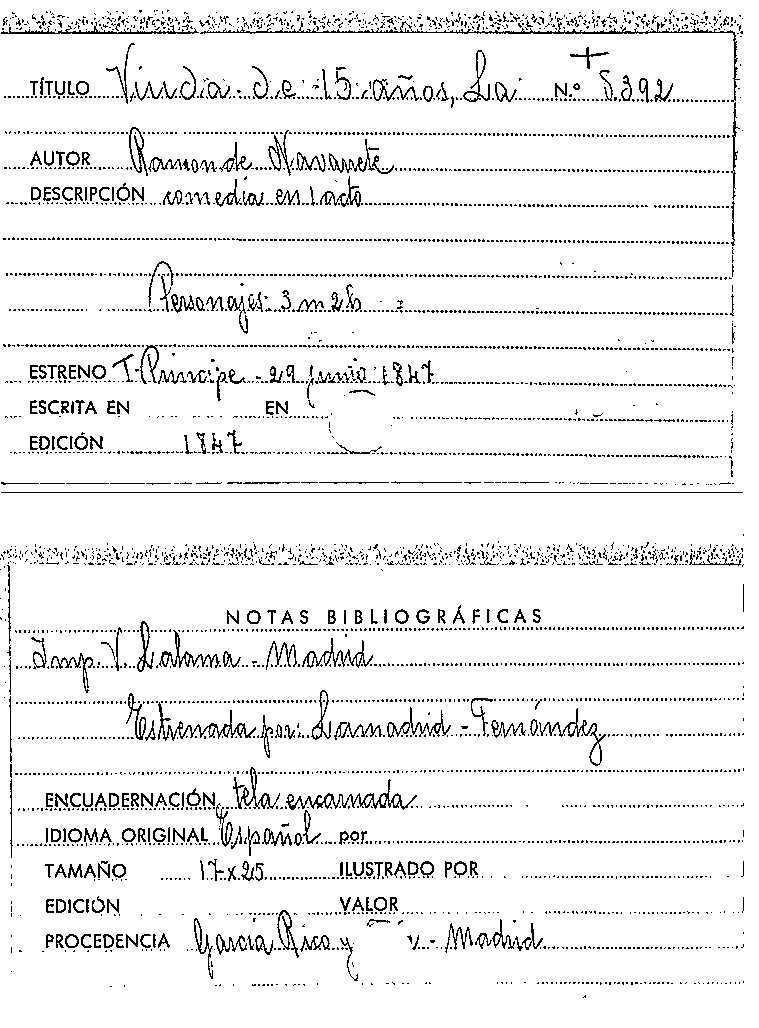 TÍTULO Viuda de 15 años, La N.º 8392
AUTOR Ramon de Navarrete
DESCRIPCIÓN comedia en 1 acto
Personajes: 3 m 2 h
ESTRENO T. Principe - 29 junio 1847
ESCRITA EN EN
EDICIÓN 1847
NOTAS BIBLIOGRÁFICAS
Imp. V. Lalama - Madrid
Estrenada por: Lamadrid - Fernández
ENCUADERNACIÓN tela encarnada
IDIOMA ORIGINAL Español por
TAMAÑO 17 x 25 ILUSTRADO POR
EDICIÓN VALOR
PROCEDENCIA García Rico y - Madrid